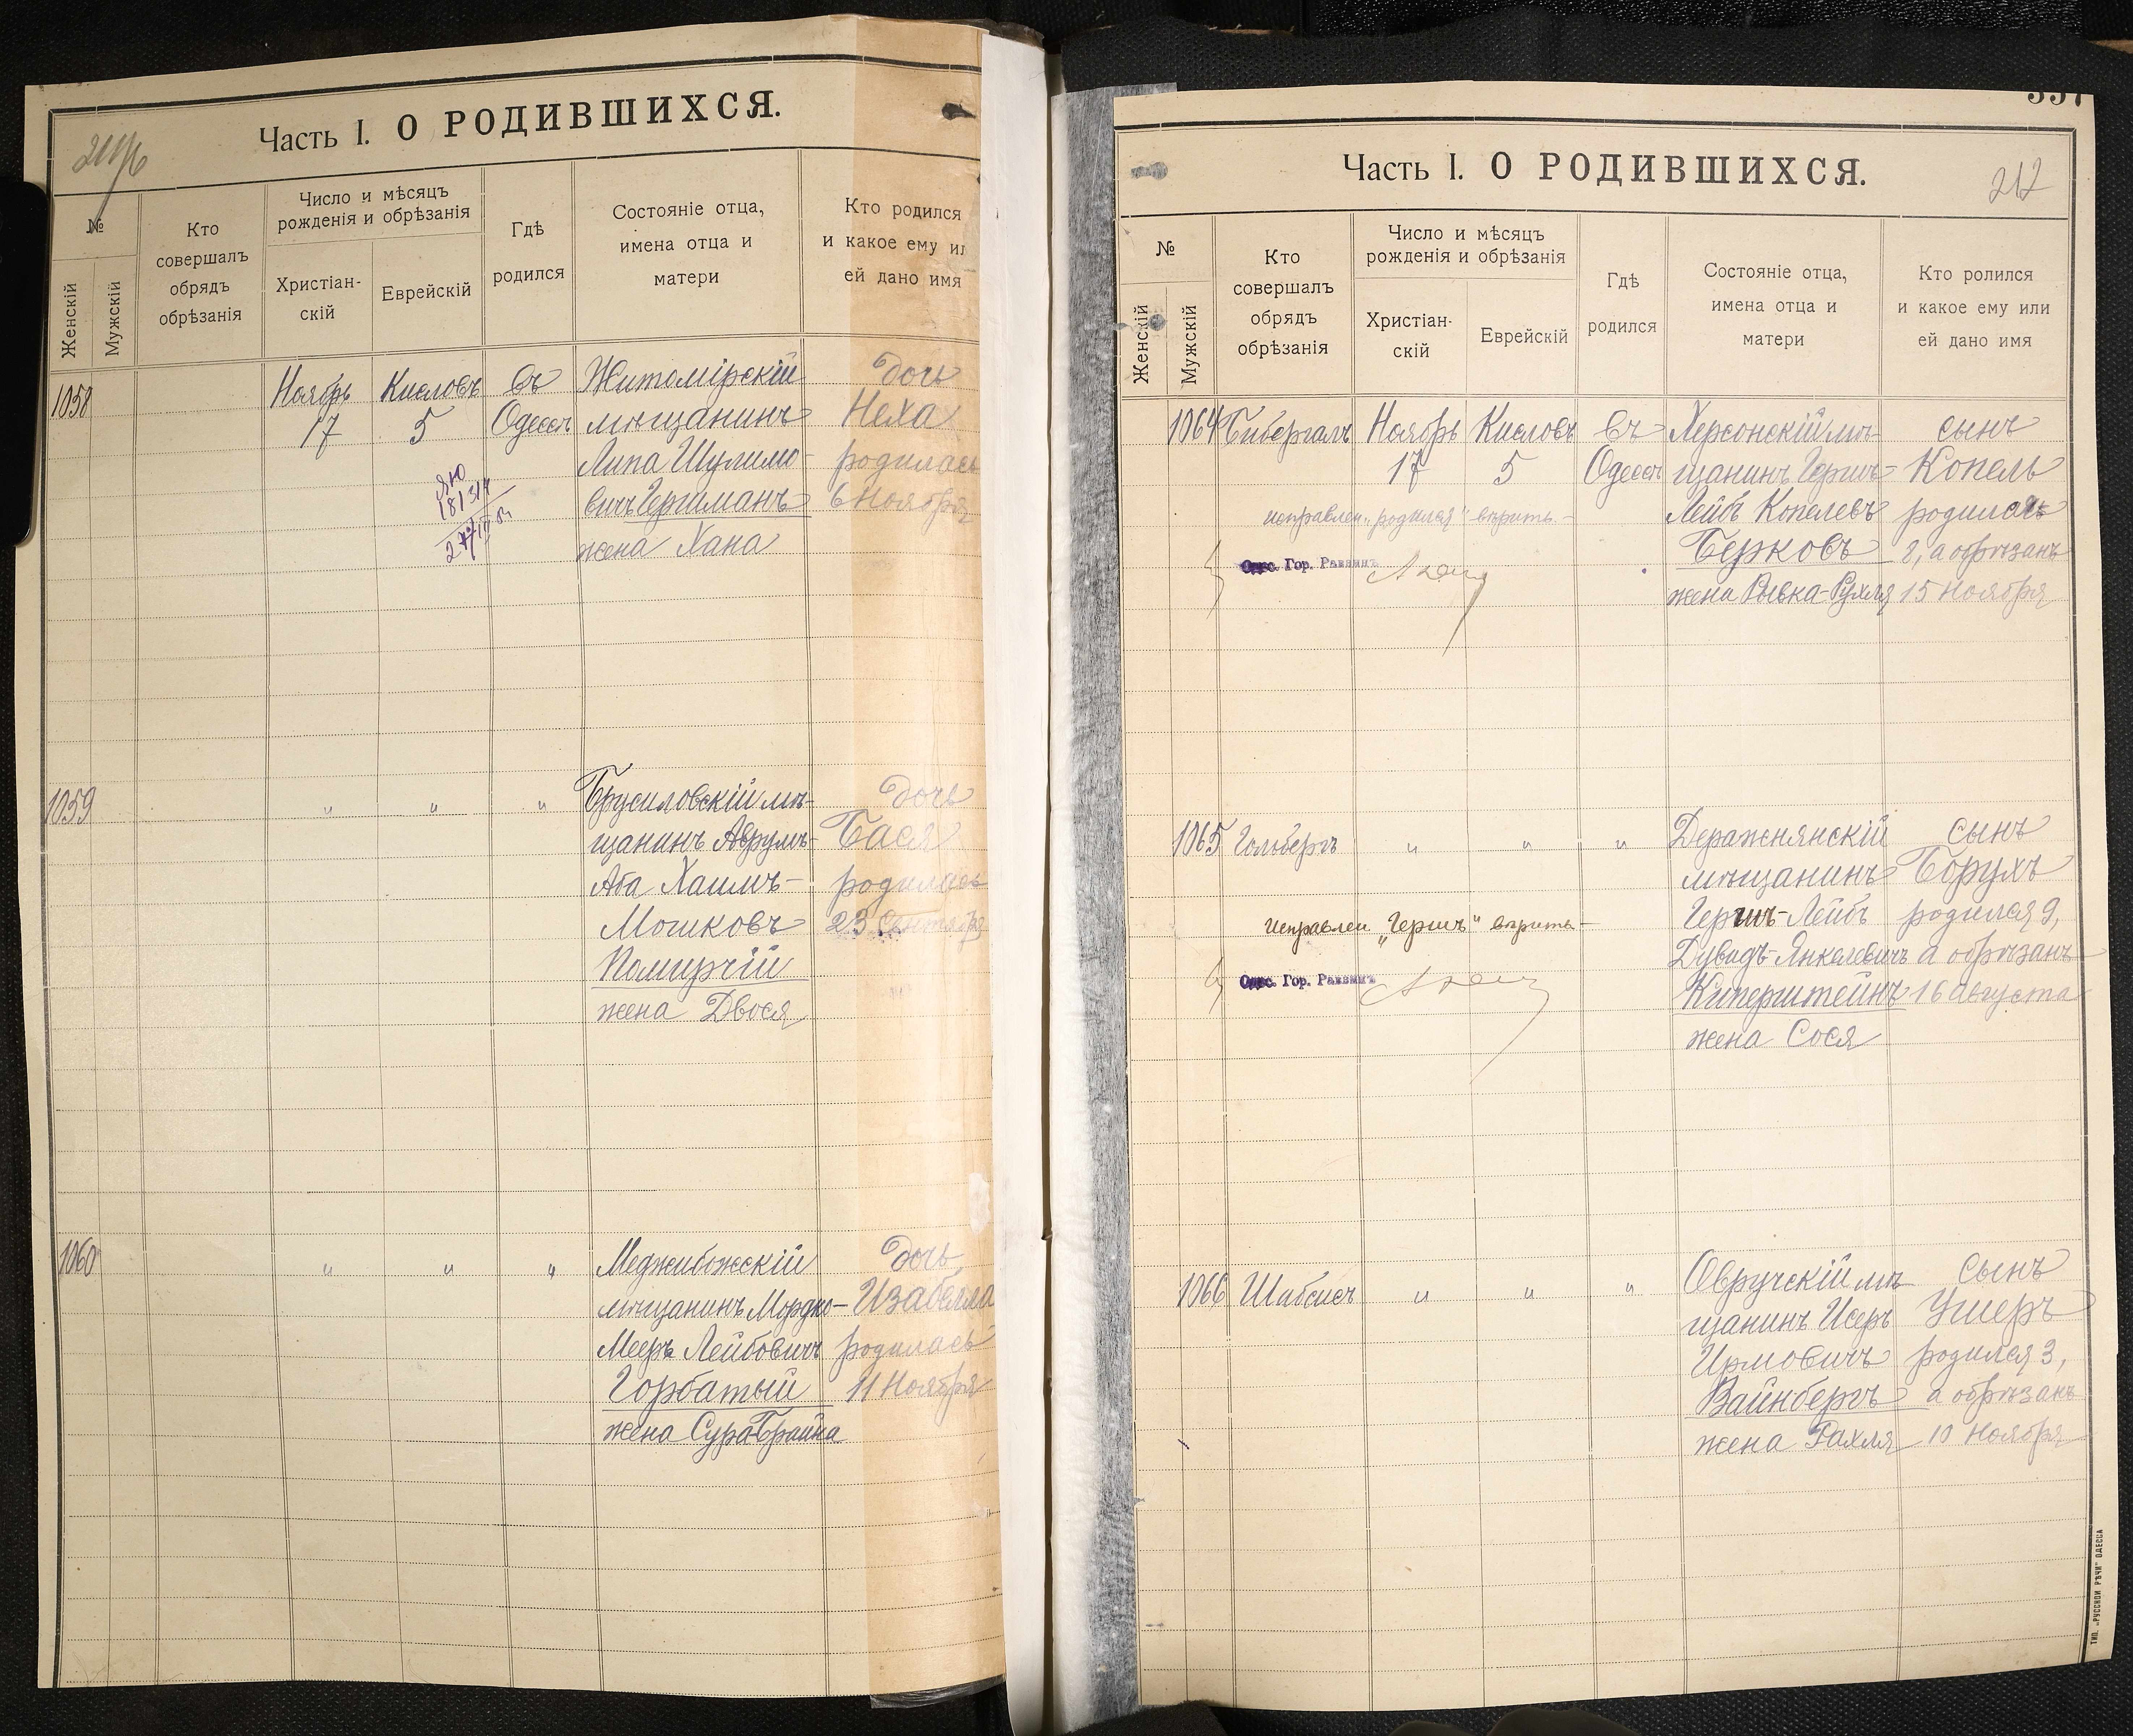 Часть I. О РОДИВШИХСЯ.
№
Женскій
Мужскій
Кто
совершалъ
обрядъ
обрѣзанія
Число и мѣсяцъ
рожденія и обрѣзанія
Христіан-
скій
Еврейскій
Гдѣ
родился
Состояніе отца,
имена отца и
матери
Кто родился
и какое ему ил
ей дано имя
1058
Ноябрь
17
Кисловъ
5
въ
Одессѣ
Житомірскій
мѣщанинъ
Липа Шулимо-
вичъ Герцманъ
жена Хана
дочь
Неха
родилась
6 Ноября
18/3/4
1059
"
"
"
Брусиловскій мѣ-
щанинъ Аврумъ-
Аба Хаимъ-
Мошковъ
Помирчій
жена Двося
дочь
Бася
родилась
23 Сентября
1060
"
"
"
Меджибожскій
мѣщанинъ Мордко-
Мееръ Лейбовичъ
Горбатый
жена Сура-Брайна
дочь
Изабелла
родилась
11 Ноября
Часть I. О РОДИВШИХСЯ.
212
№
Женскій
Мужскій
Кто
совершалъ
обрядъ
обрѣзанія
Число и мѣсяцъ
рожденія и обрѣзанія
Христіан-
скій
Еврейскій
Гдѣ
родился
Состояніе отца,
имена отца и
матери
Кто ролился
и какое ему или
ей дано имя
1064
Бибергалъ
Ноябрь
17
Кисловъ
5
въ
Одессѣ
Херсонскій мѣ-
щанинъ Гершъ-
Лейбъ Копелевъ
Берковъ
жена Рывка-Рухля
сынъ
Копель
родился
2, а обрѣзанъ
15 Ноября
исправлен. "родился" вѣрить.-
Одес. Гор. Раввинъ
1065
Гольбергъ
"
"
"
Деражнянскій
мѣщанинъ
Гершъ-Лейбъ
Дувидъ Янкелевичъ
Киперштейнъ
жена Сося
сынъ
Борухъ
родился 9,
а обрѣзанъ
16 Августа
исправлен "Гершъ" вѣрить-
Одес. Гор. Раввинъ
1066
Шабсисъ
"
"
"
Овручскій мѣ-
щанинъ Исеръ
Ирмовичъ
Вайнбергъ
жена Рахля
сынъ
Ушеръ
родился 3,
а обрѣзанъ
10 Ноября
ТИП. „РУССКОЙ РѢЧИ" ОДЕССА